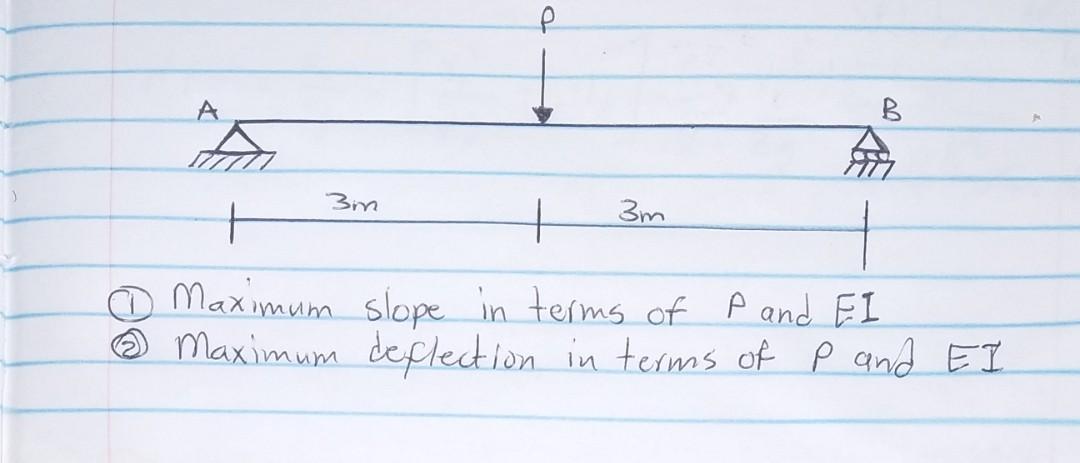 P
A
B
3m
3m
① Maximum slope in terms of P and EI
② Maximum deflection in terms of P and EI